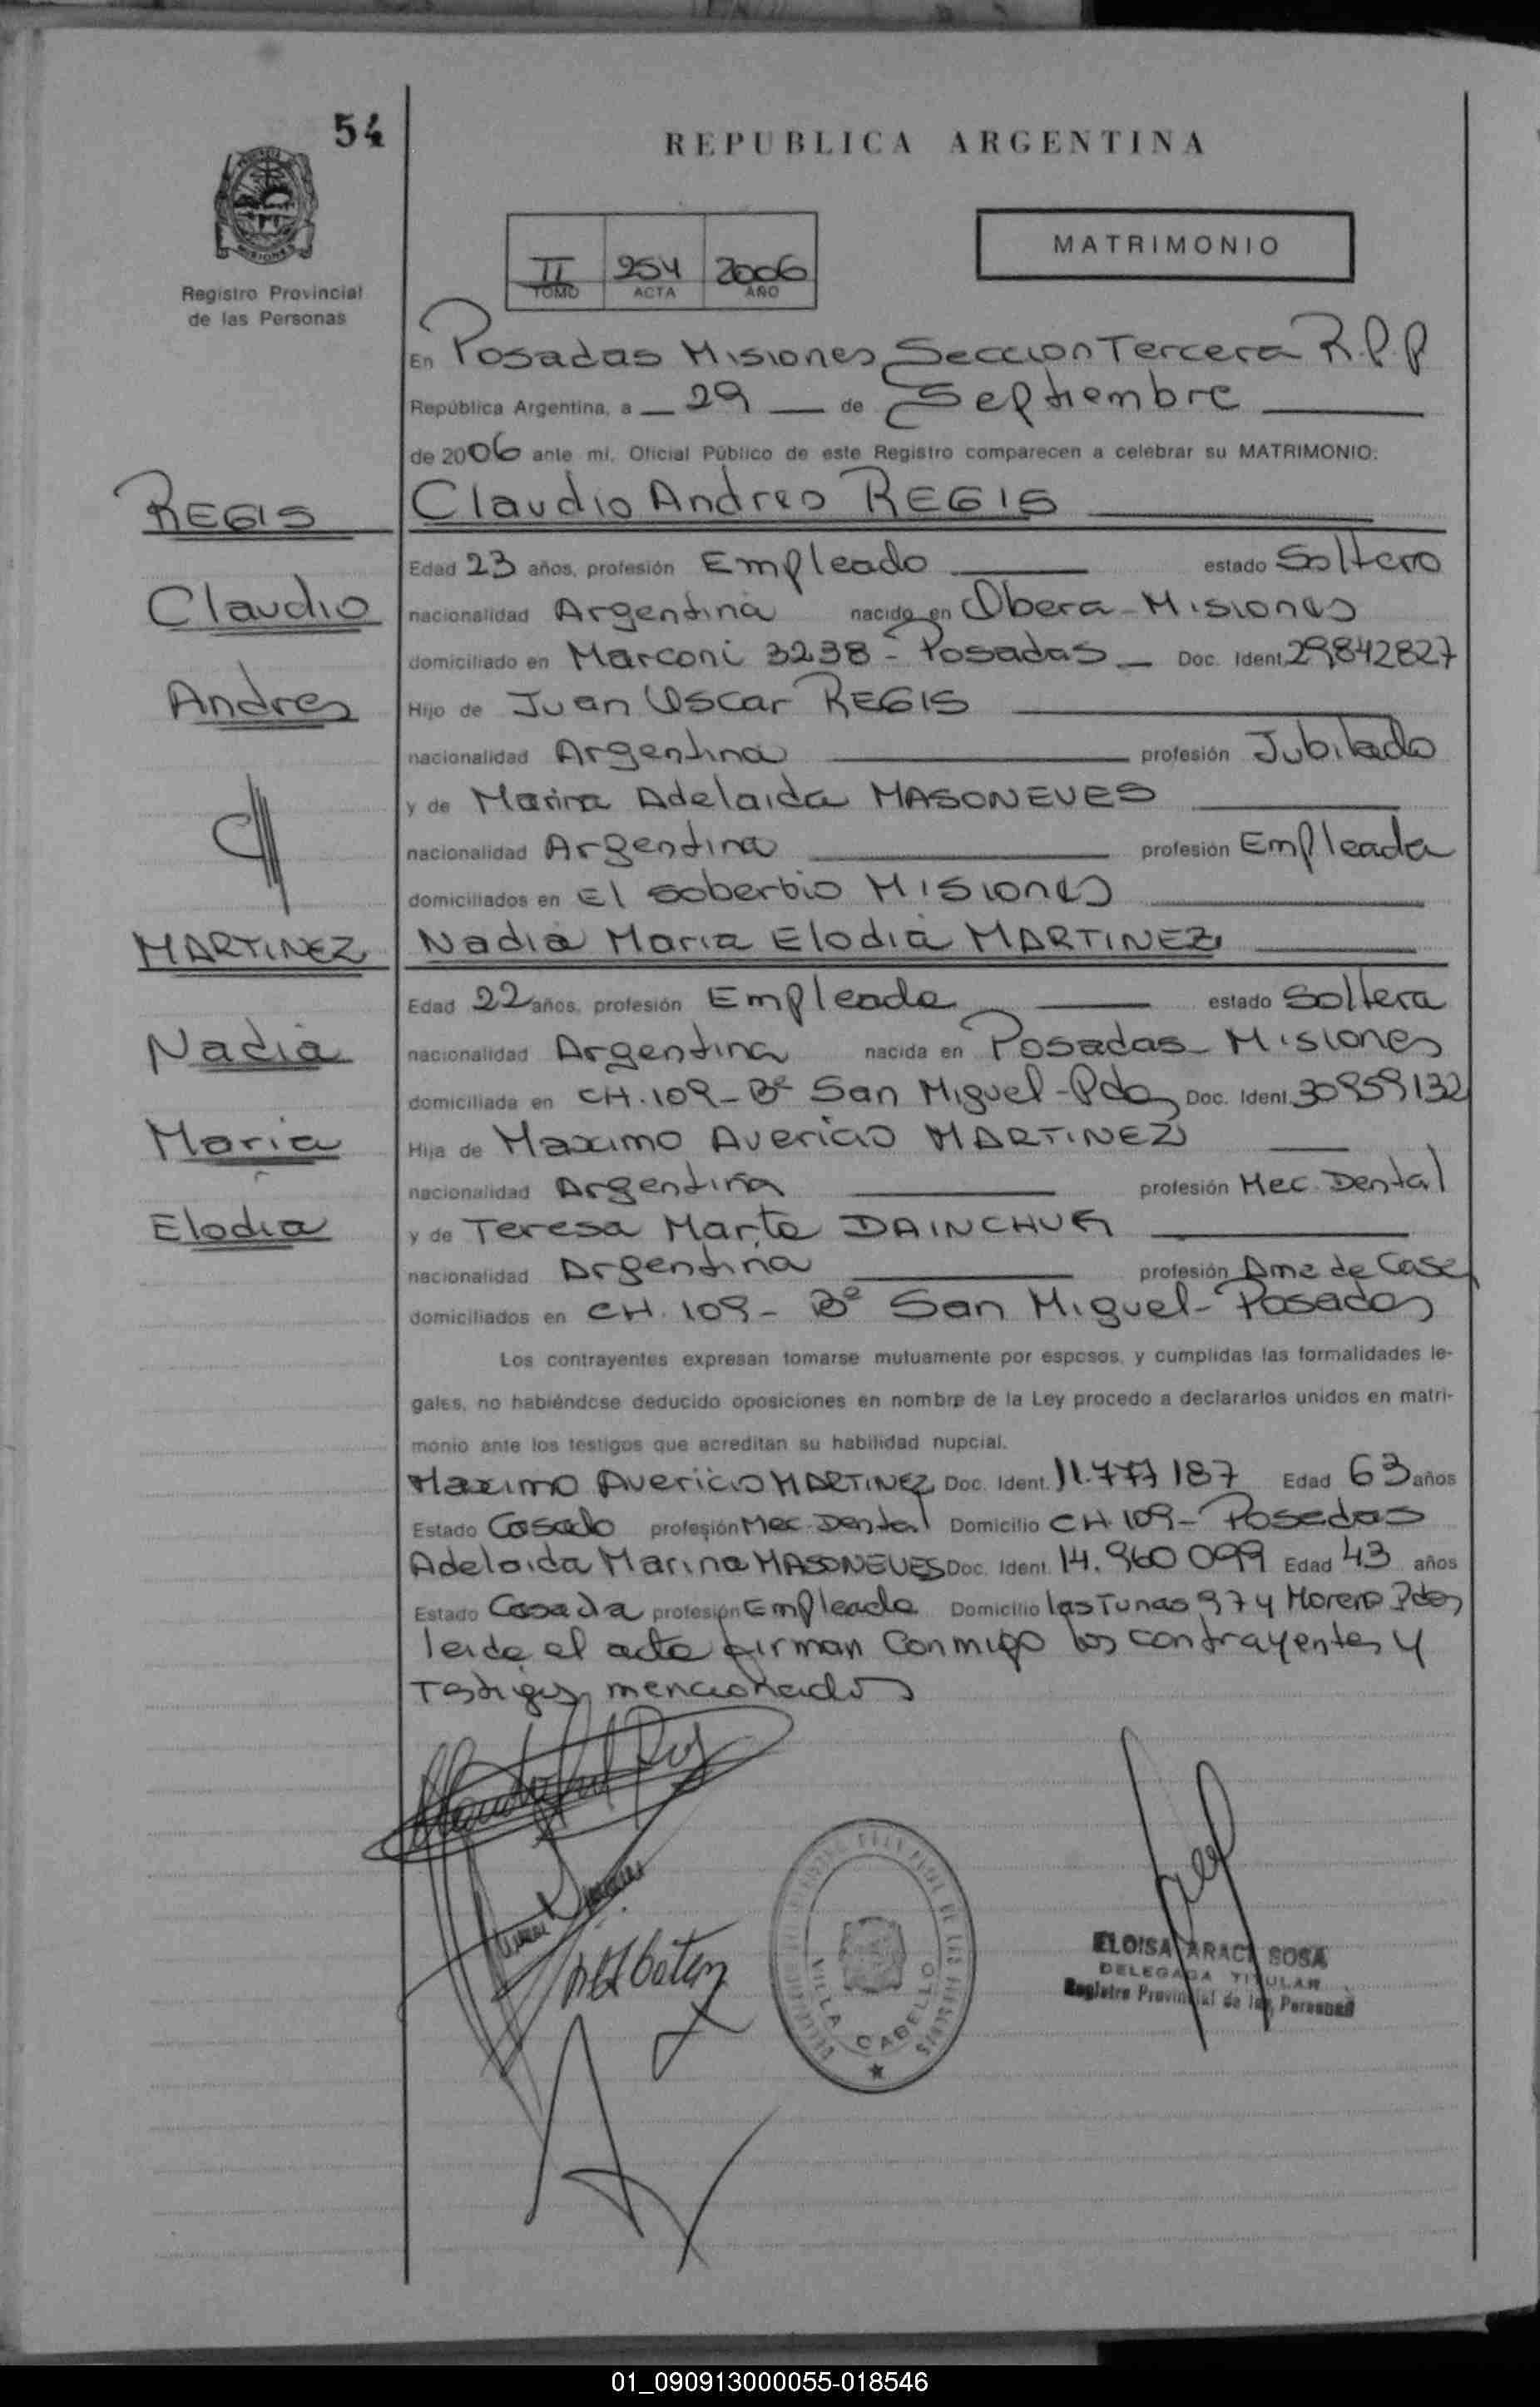 54
REPUBLICA ARGENTINA
MISIONES
Registro Provincial
de las Personas
II 254 2006
TOMO ACTA AÑO
MATRIMONIO
En Posadas Misiones Seccion Tercera R.P.P
República Argentina, a 29 de Septiembre
de 2006 ante mí, Oficial Público de este Registro comparecen a celebrar su MATRIMONIO:
REGIS
Claudio Andres REGIS
Edad 23 años, profesión Empleado estado Soltero
Claudio
nacionalidad Argentina nacido en Obera - Misiones
domiciliado en Marconi 3238 - Posadas Doc. Ident. 29,842827
Andres
Hijo de Juan Oscar REGIS
nacionalidad Argentina profesión Jubilado
y de Marina Adelaida MASONEVES
nacionalidad Argentina profesión Empleada
domiciliados en El soberbio Misiones
MARTINEZ
Nadia Maria Elodia MARTINEZ
Edad 22 años, profesión Empleada estado Soltera
Nadia
nacionalidad Argentina nacida en Posadas - Misiones
domiciliada en CH. 109 - Bº San Miguel - Pdas Doc. Ident. 30959132
Maria
Hija de Maximo Avericio MARTINEZ
nacionalidad Argentina profesión Mec. Dental
Elodia
y de Teresa Marta DAINCHUK
nacionalidad Argentina profesión Ama de Casa
domiciliados en CH. 109 - Bº San Miguel - Posadas
Los contrayentes expresan tomarse mutuamente por esposos, y cumplidas las formalidades le-
gales, no habiéndose deducido oposiciones en nombre de la Ley procedo a declararlos unidos en matri-
monio ante los testigos que acreditan su habilidad nupcial.
Maximo Avericio MARTINEZ Doc. Ident. 11.777187 Edad 63 años
Estado Casado profesión Mec. Dental Domicilio CH 109 - Posadas
Adelaida Marina MASONEVES Doc. Ident. 14.960 099 Edad 43 años
Estado Casada profesión Empleada Domicilio las Tunas 974 Moreno Pdas
leida el acta firman Conmigo los contrayentes y
Testigos mencionados
VILLA CABELLO
ELOISA ARACI SOSA
DELEGADA TITULAR
Registro Provincial de las Personas
01_090913000055-018546